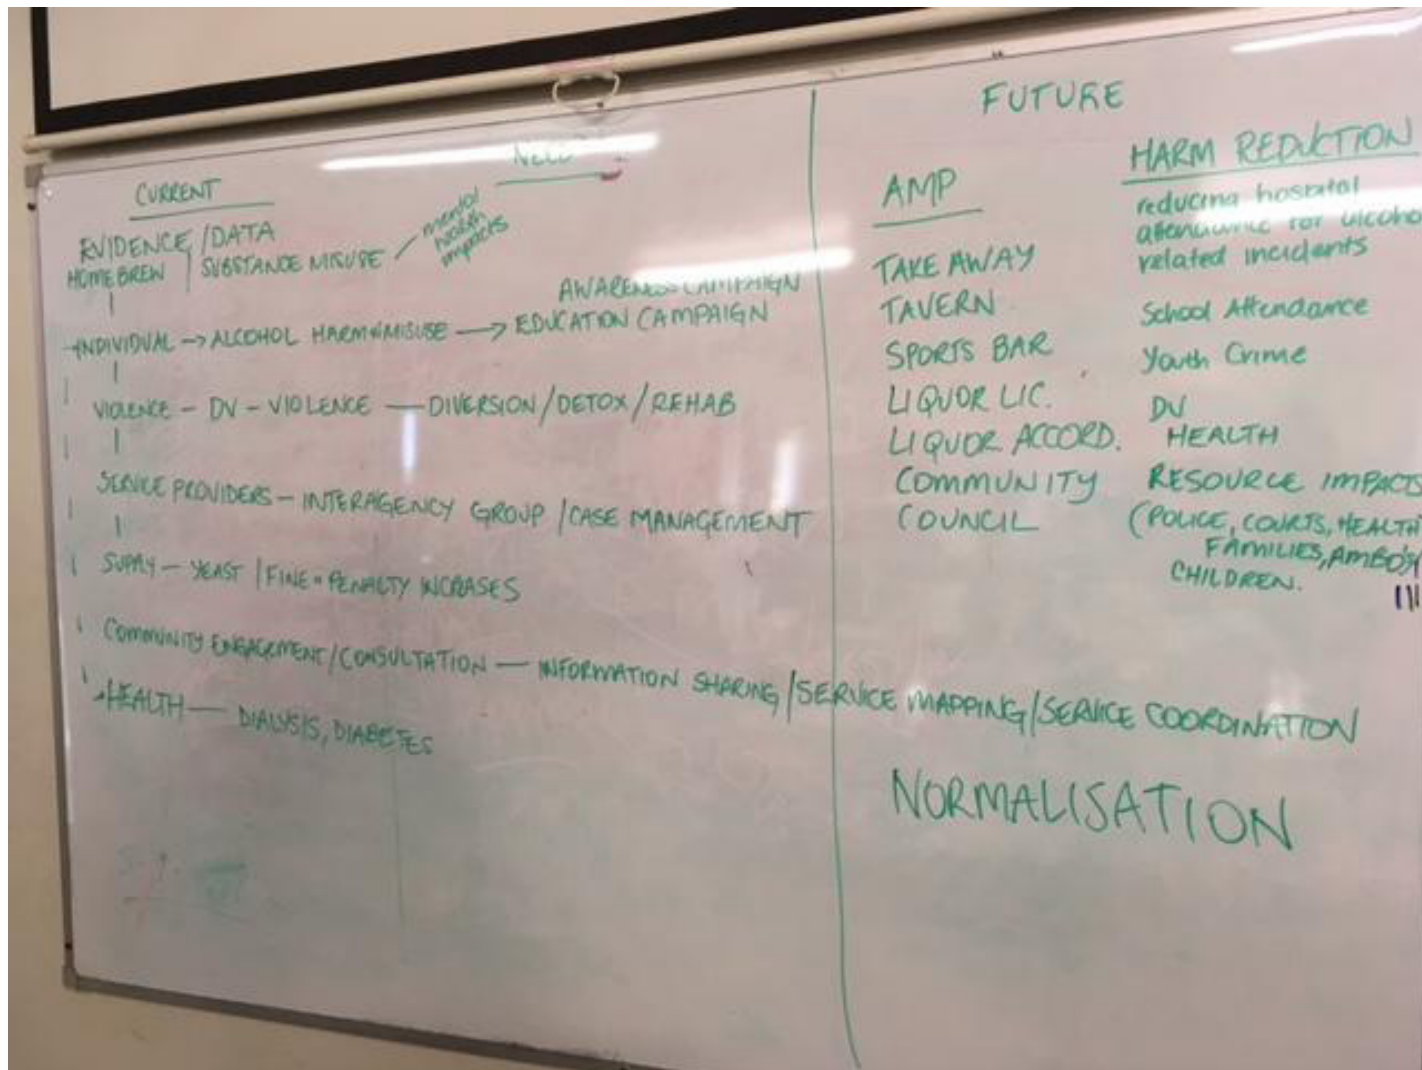 CURRENT
NEED
EVIDENCE/DATA
HOMEBREW / SUBSTANCE MISUSE / mental health impacts
AWARENESS CAMPAIGN
INDIVIDUAL -> ALCOHOL HARM+MISUSE -> EDUCATION CAMPAIGN
VIOLENCE - DV - VIOLENCE — DIVERSION/DETOX/REHAB
SERVICE PROVIDERS - INTERAGENCY GROUP/CASE MANAGEMENT
SUPPLY - YEAST / FINE = PENALTY INCRASES
COMMUNITY ENGAGEMENT/CONSULTATION — INFORMATION SHARING/SERVICE MAPPING/SERVICE COORDINATION
HEALTH — DIALYSIS, DIABETES
FUTURE
AMP
TAKE AWAY
TAVERN
SPORTS BAR
LIQUOR LIC.
LIQUOR ACCORD.
COMMUNITY
COUNCIL
HARM REDUCTION
reducing hospital
attendance for alcoho
related incidents
School Attendance
Youth Crime
DV
HEALTH
RESOURCE IMPACTS
(POLICE, COURTS, HEALTH
FAMILIES, AMBO'S
CHILDREN.
NORMALISATION